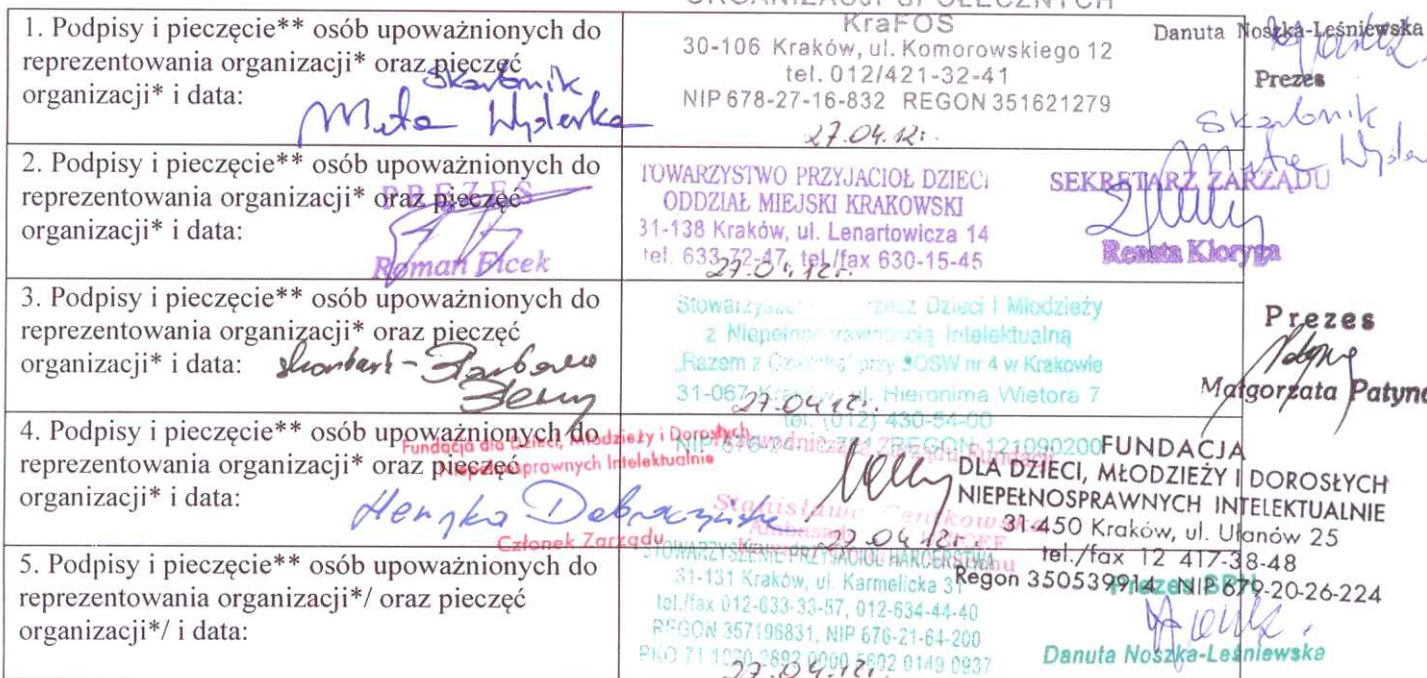 ORGANIZACJI SPOŁECZNYCH
1. Podpisy i pieczęcie** osób upoważnionych do
reprezentowania organizacji* oraz pieczęć
organizacji* i data:
Skarbnik
KraFOS
30-106 Kraków, ul. Komorowskiego 12
tel. 012/421-32-41
NIP 678-27-16-832 REGON 351621279
27.04.12r.
Danuta Noszka-Leśniewska
Prezes
Skarbnik
2. Podpisy i pieczęcie** osób upoważnionych do
reprezentowania organizacji* oraz pieczęć
organizacji* i data:
PREZES
Roman Ficek
TOWARZYSTWO PRZYJACIÓŁ DZIECI
ODDZIAŁ MIEJSKI KRAKOWSKI
31-138 Kraków, ul. Lenartowicza 14
tel. 633-72-47, tel./fax 630-15-45
27.04.12r.
SEKRETARZ ZARZĄDU
Renata Kloryga
3. Podpisy i pieczęcie** osób upoważnionych do
reprezentowania organizacji* oraz pieczęć
organizacji* i data:
Dzieci i Młodzieży
z Niepełnosprawnością Intelektualną
"Razem z Czwórką" przy SOSW nr 4 w Krakowie
31-067 Kraków, ul. Hieronima Wietora 7
tel. (012) 430-54-00
REGON 121090200
27.04.12r.
Prezes
Małgorzata Patyna
4. Podpisy i pieczęcie** osób upoważnionych do
reprezentowania organizacji* oraz pieczęć
organizacji* i data:
Fundacja dla Dzieci, Młodzieży i Dorosłych
Niepełnosprawnych Intelektualnie
Członek Zarządu
Przewodnicząca Zarządu Fundacji
Stanisława
27.04.12r.
FUNDACJA
DLA DZIECI, MŁODZIEŻY I DOROSŁYCH
NIEPEŁNOSPRAWNYCH INTELEKTUALNIE
31-450 Kraków, ul. Ułanów 25
tel./fax 12 417-38-48
Regon 350539914 NIP 679-20-26-224
5. Podpisy i pieczęcie** osób upoważnionych do
reprezentowania organizacji*/ oraz pieczęć
organizacji*/ i data:
STOWARZYSZENIE PRZYJACIÓŁ HARCERSTWA
31-131 Kraków, ul. Karmelicka 31
tel./fax 012-633-33-57, 012-634-44-40
REGON 357196831, NIP 676-21-64-200
27.04.12r.
Prezes
Danuta Noszka-Leśniewska